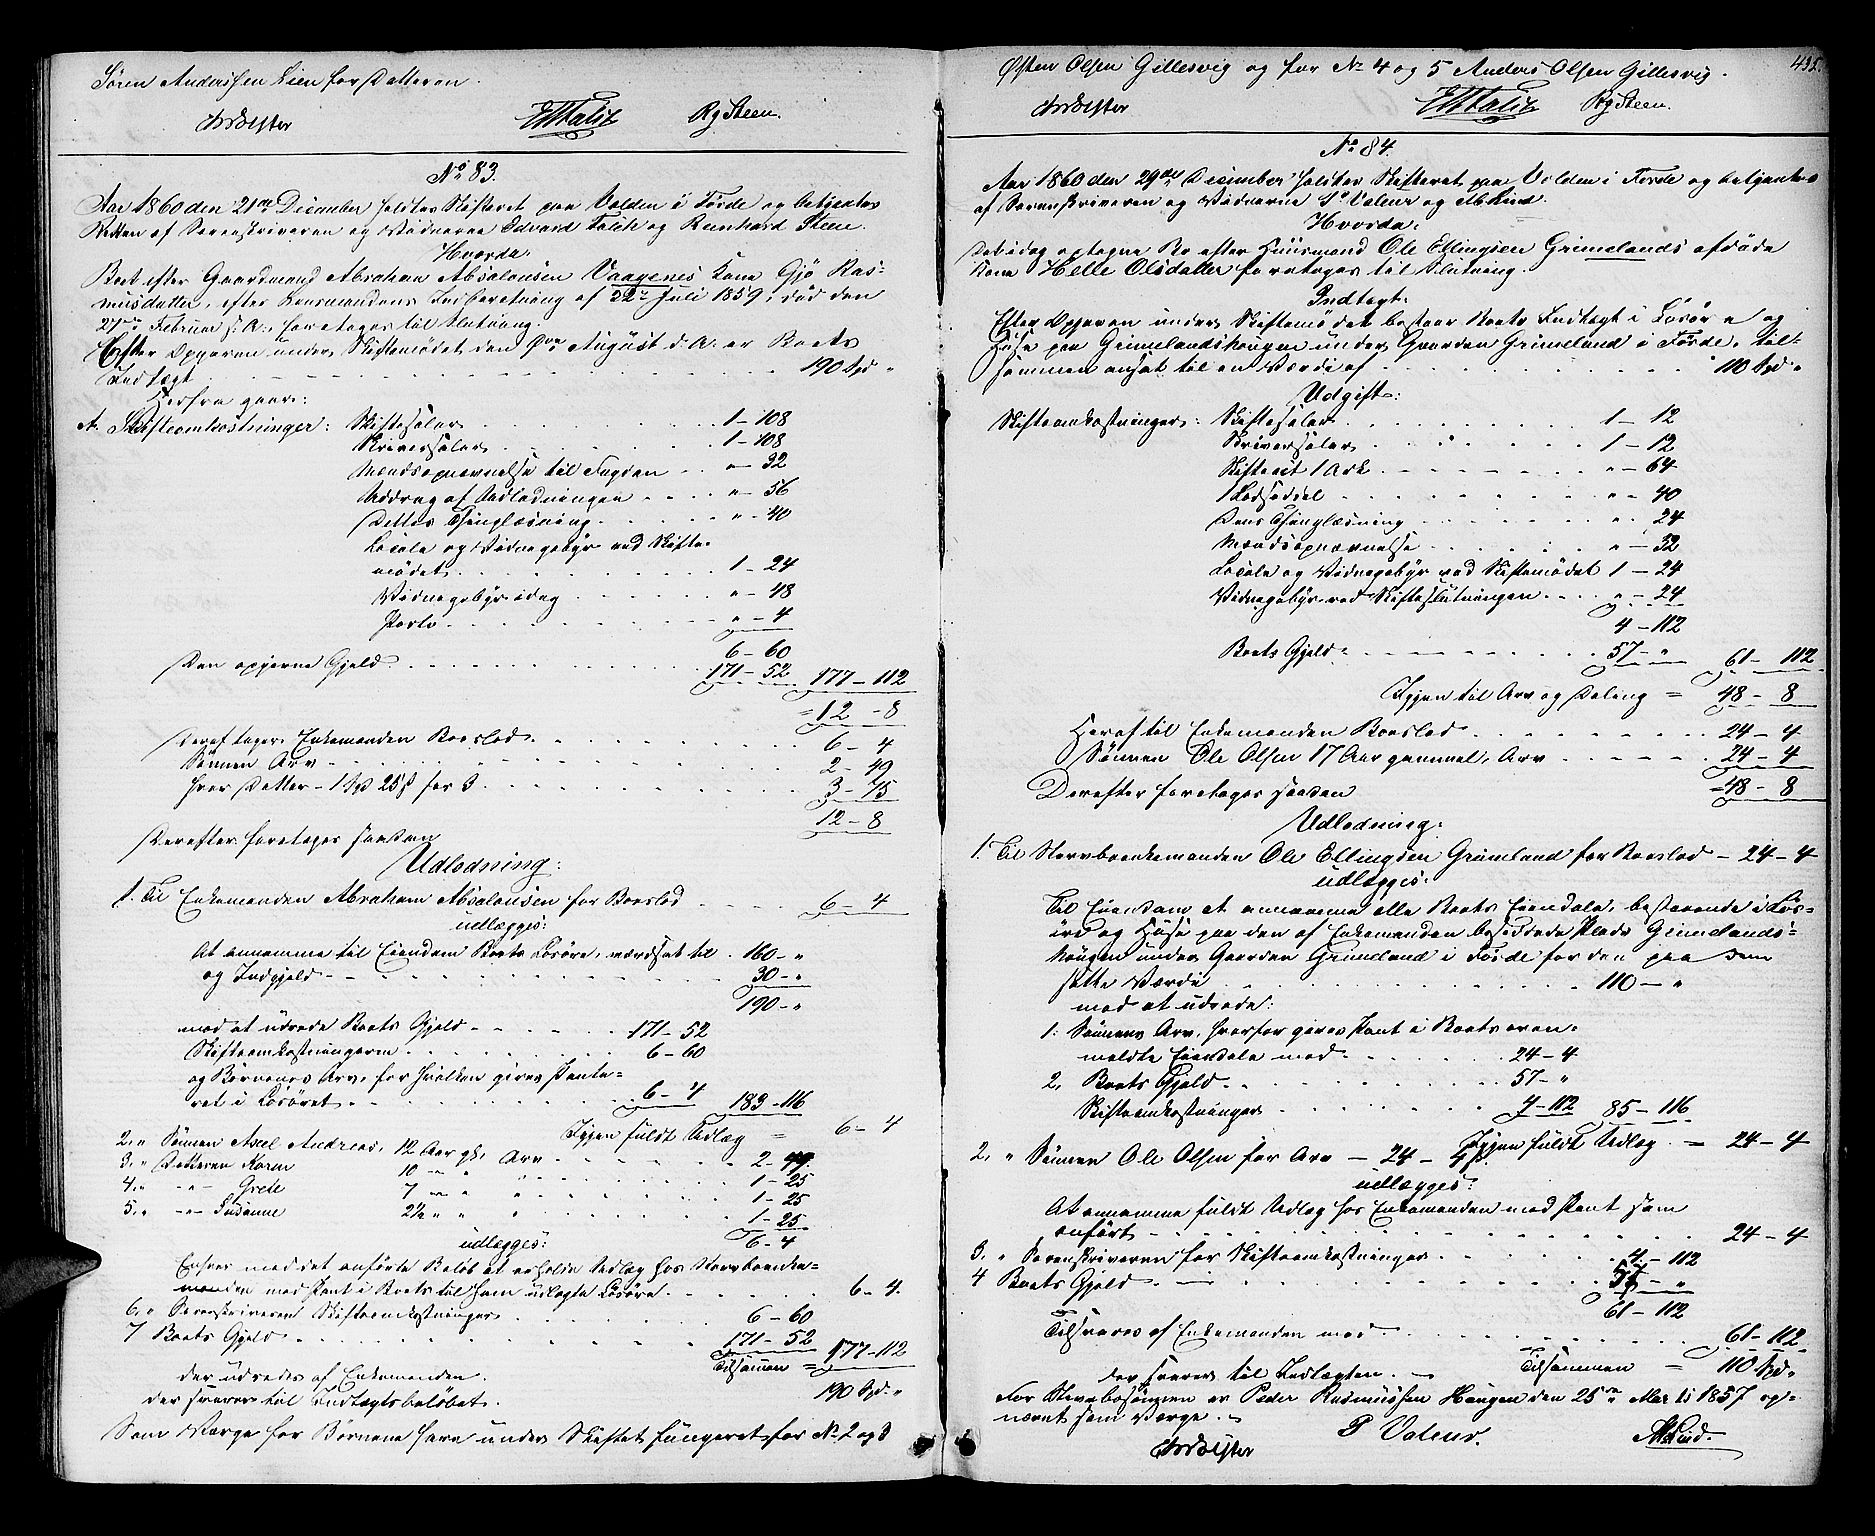 Søren Anderssen Lien for Datteren.
EMFalck RgSteen.
No 83.
Aar 1860 den 21de December holdtes Skifteret paa Volden i Førde og betjentes
Retten af Sorenskriveren og Vidnerne Edvard Falch og Reinhard Steen.
Hvorda:
Boet efter Gaardmand Abraham Absalonsen Vaagenes Kone Gjø Ras-
musdatter, efter Lensmandens Indberetning af 22de Juli 1859, død den
27de Februar s. A., foretages til Slutning.
Efter Opgaven under Skiftemødet den 9de August d. A. er Boets
Indtægt 190 Spd "
Herfra gaar:
A. Skifteomkostninger: Skiftesalær 1 - 108
Skriversalær 1 - 108
Mændsopnævnelse til Fogden " - 32
Uddrag af Udlodningen " - 56
Dettes Thinglæsning " - 40
Locale og Vidnegebyr ved Skifte-
mødet 1 - 24
Vidnegebyr idag " - 48
Porto " - 4
6 - 60
Den opgivne Gjeld 171 - 52 177 - 112
= 12 - 8
Deraf tager Enkemanden Boeslod 6 - 4
Sønnen Arv 2 - 49
hver Datter - 1 Spd 25 s for 3 3 - 75
12 - 8
Derefter foretages saadan
Udlodning:
1. Til Enkemanden Abraham Absalonsen for Boeslod 6 - 4
udlægges:
At annamme til Eiendom Boets Løsøre, værdsat til 160 - "
og Indgjeld 30 - "
190 - "
mod at udrede Boets Gjeld 171 - 52
Skifteomkostningerne 6 - 60
og Børnenes Arv, for hvilken gives Pante-
ret i Løsøret 6 - 4 183 - 116
Igjen fuldt Udlæg = 6 - 4
2, " Sønnen Axel Andreas, 12 Aar gl. Arv 2 - 49.
3, " Datteren Karen 10 " " " 1 - 25
4, " -"- Grete 7 " " " 1 - 25
5, " -"- Susanne 2½ " " " 1 - 25
udlægges: 6 - 4
Enhver med det anførte Beløb at erholde Udlæg hos Stervboenke-
manden med Pant i Boets til ham udlagte Løsøre 6 - 4.
6, " Sorenskriveren Skifteomkostninger 6 - 60
7 Boets Gjeld 171 - 52
Tilsammen = 177 - 112
der udredes af Enkemanden.
der svarer til Indtægtsbeløbet. 190 Spd. "
Som Værge for Børnene have under Skiftet fungeret for No 2 og 3
Østen Olsen Gillesvig og for No 4 og 5 Anders Olsen Gillesvig. 435.
EMFalck RgSteen.
No 84.
Aar 1860 den 29de December holdtes Skifteret paa Volden i Førde og betjentes
af Sorenskriveren og Vidnerne P Valeur og Ab Lind.
Hvorda:
Det idag optagne Bo efter Huusmand Ole Ellingsen Grimelands afdøde
Kone Helle Olsdatter foretages til Slutning.
Indtægt:
Efter Opgaven under Skiftemødet bestaar Boets Indtægt i Løsøre og
Huse paa Grimelandshaugen under Gaarden Grimeland i Førde, til-
sammen ansat til en Værdi af 110 Spd "
Udgift:
Skifteomkostninger: Skiftesalær 1 - 12
Skriversalær 1 - 12
Skifteact 1 Ark " - 64
1 Lodseddel " - 40
Dens Thinglæsning " - 24
Mændsopnævnelse " - 32
Locale og Vidnegebyr ved Skiftemødet 1 - 24
Vidnegebyr ved Skifteslutningen " - 24
4 - 112
Boets Gjeld 57 - " 61 - 112
Igjen til Arv og Deling = 48 - 8
Heraf til Enkemanden Boeslod 24 - 4
Sønnen Ole Olsen 17 Aar gammel, Arv 24 - 4
Derefter foretages saadan = 48 - 8
Udlodning:
1. Til Stervboenkemanden Ole Ellingsen Grimeland for Boeslod - 24 - 4
udlægges:
Til Eiendom at annamme alle Boets Eiendele, bestaaende i Løs-
øre og Huse paa den af Enkemanden besiddede Plads Grimelands-
haugen under Gaarden Grimeland i Førde for den paa dem
satte Værdi 110 - "
mod at udrede:
1. Sønnens Arv, hvorfor gives Pant i Boets oven-
meldte Eiendele med 24 - 4
2, Boets Gjeld 57 - "
Skifteomkostninger 4 - 112 85 - 116
Igjen fuldt Udlæg = 24 - 4
2, " Sønnen Ole Olsen for Arv - 24 - 4 s
udlægges:
At annamme fuldt Udlæg hos Enkemanden med Pant som
anført 24 - 4
3, " Sorenskriveren for Skifteomkostninger 4 - 112
4 Boets Gjeld 57 - "
61 - 112
Tilsvares af Enkemanden med 61 - 112
der svarer til Indtægten. Tilsammen = 110 Spd "
For Stervbosønnen er Peder Rasmussen Haugen den 25de Marts 1857 op-
nævnt som Værge.
P Valeur. Ab Lind.